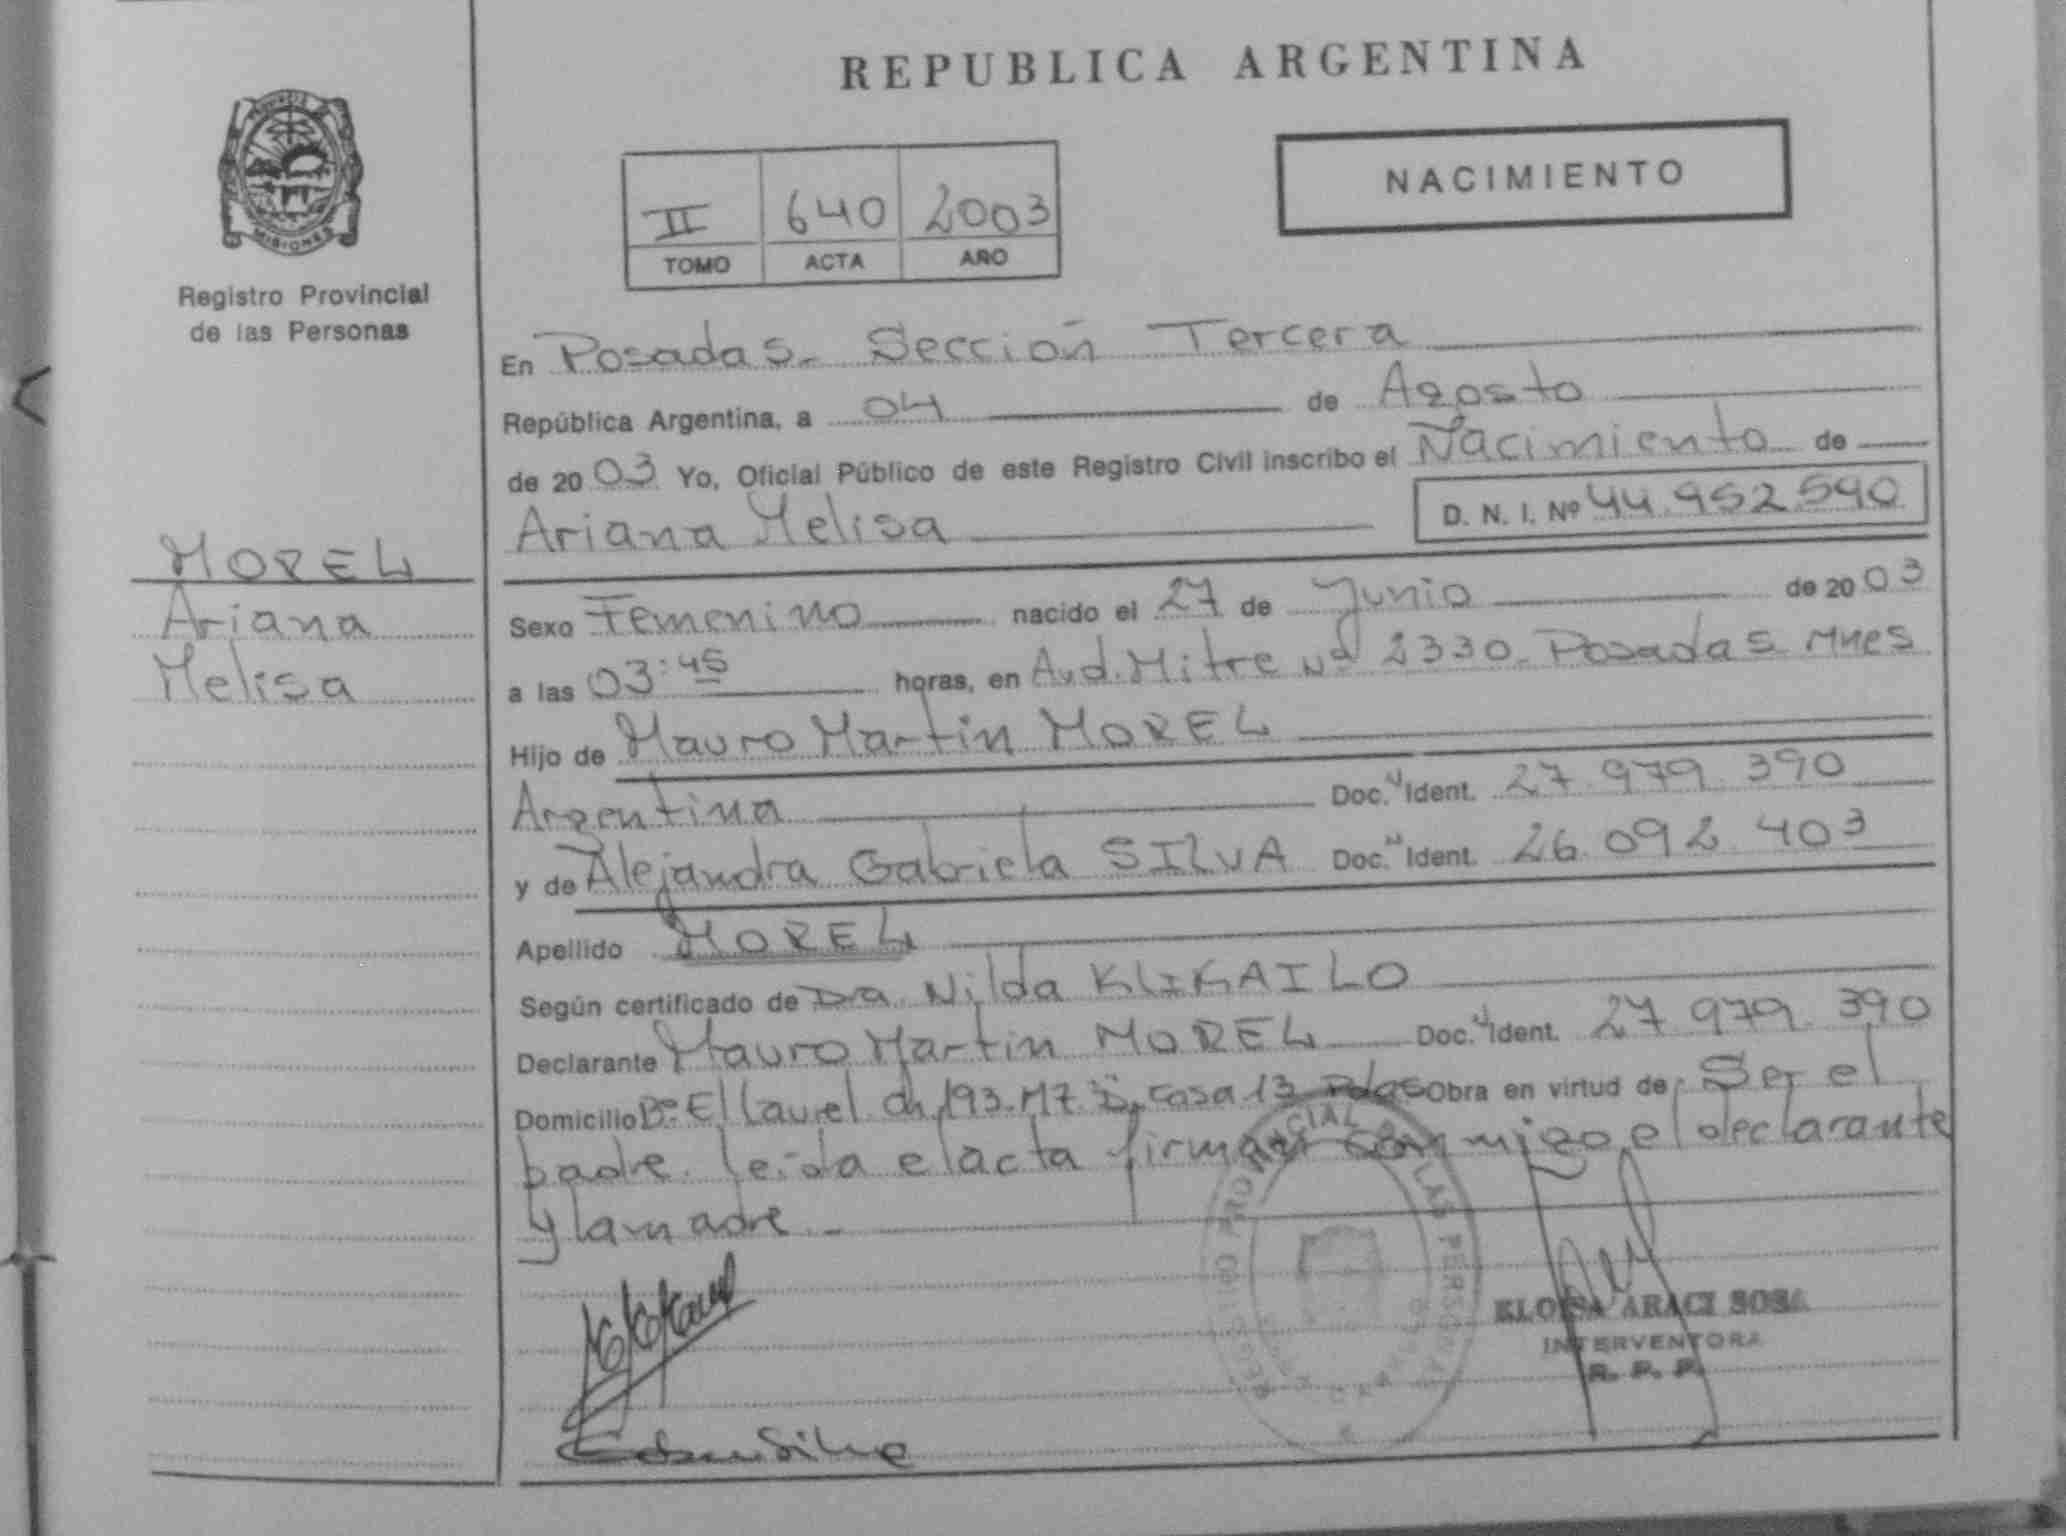 REPUBLICA ARGENTINA
NACIMIENTO
II 640 2003
TOMO ACTA AÑO
MISIONES
Registro Provincial
de las Personas
MOREL
Ariana
Melisa
En Posadas. Sección Tercera
República Argentina, a 04 de Agosto
de 2003 Yo, Oficial Público de este Registro Civil inscribo el Nacimiento de
Ariana Melisa D. N. I. Nº 44.952.590
Sexo Femenino nacido el 27 de Junio de 2003
a las 03:45 horas, en Avd. Mitre Nº 2330. Posadas Mnes
Hijo de Mauro Martin MOREL
Argentina Doc. Ident. 27.979.390
y de Alejandra Gabriela SILVA Doc. Ident. 26.092.403
Apellido MOREL
Según certificado de Dra. Nilda
Declarante Mauro Martin MOREL Doc. Ident. 27.979.390
Domicilio Bº El Laurel ch 193. Mz casa 13 Pdas Obra en virtud de Ser el
padre. leida el acta firman conmigo el declarante
y la madre.-
REGISTRO PROVINCIAL DE LAS PERSONAS
ELOISA ARACI SOSA
INTERVENTORA
R. P. P.